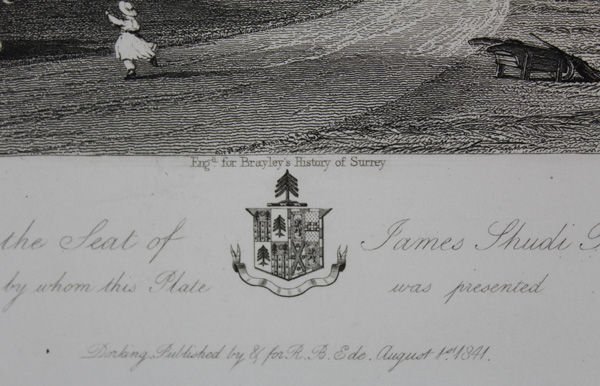 Engd. for Brayley's History of Surrey
the Seat of James Shudi
by whom this Plate was presented
Dorking, Published by & for R. B. Ede. August 1st 1841.